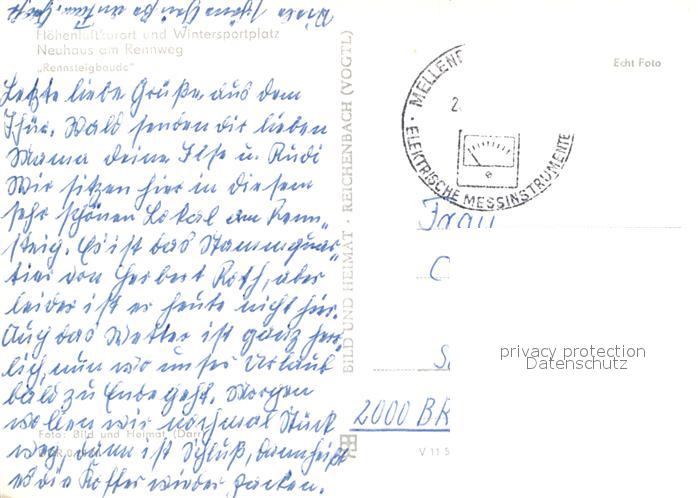 Viele schöne Grüße an Fam.
Höhenluftkurort und Wintersportplatz
Neuhaus am Rennweg
„Rennsteigbaude"
Letzte liebe Grüße aus dem
Thür. Wald senden dir lieben
Mama deine Ilse u. Rudi
Wir sitzen hier in diesem
sehr schönen Lokal am Renn„
steig. Es ist das Stammquar„
tier von Herbert Roth, aber
leider ist er heute nicht hier.
Auch das Wetter ist ganz herr„
lich, nun wo unser Urlaub
bald zu Ende geht. Morgen
wollen wir nochmal Stück
weg, dann ist Schluß, dann heißt
es die Koffer wieder packen.
Foto: Bild und Heimat (Darr)
BILD UND HEIMAT · REICHENBACH (VOGTL)
V 11 5
Echt Foto
MELLENB
2
ELEKTRISCHE MESSINSTRUMENTE
Frau
2000 BR
privacy protection
Datenschutz